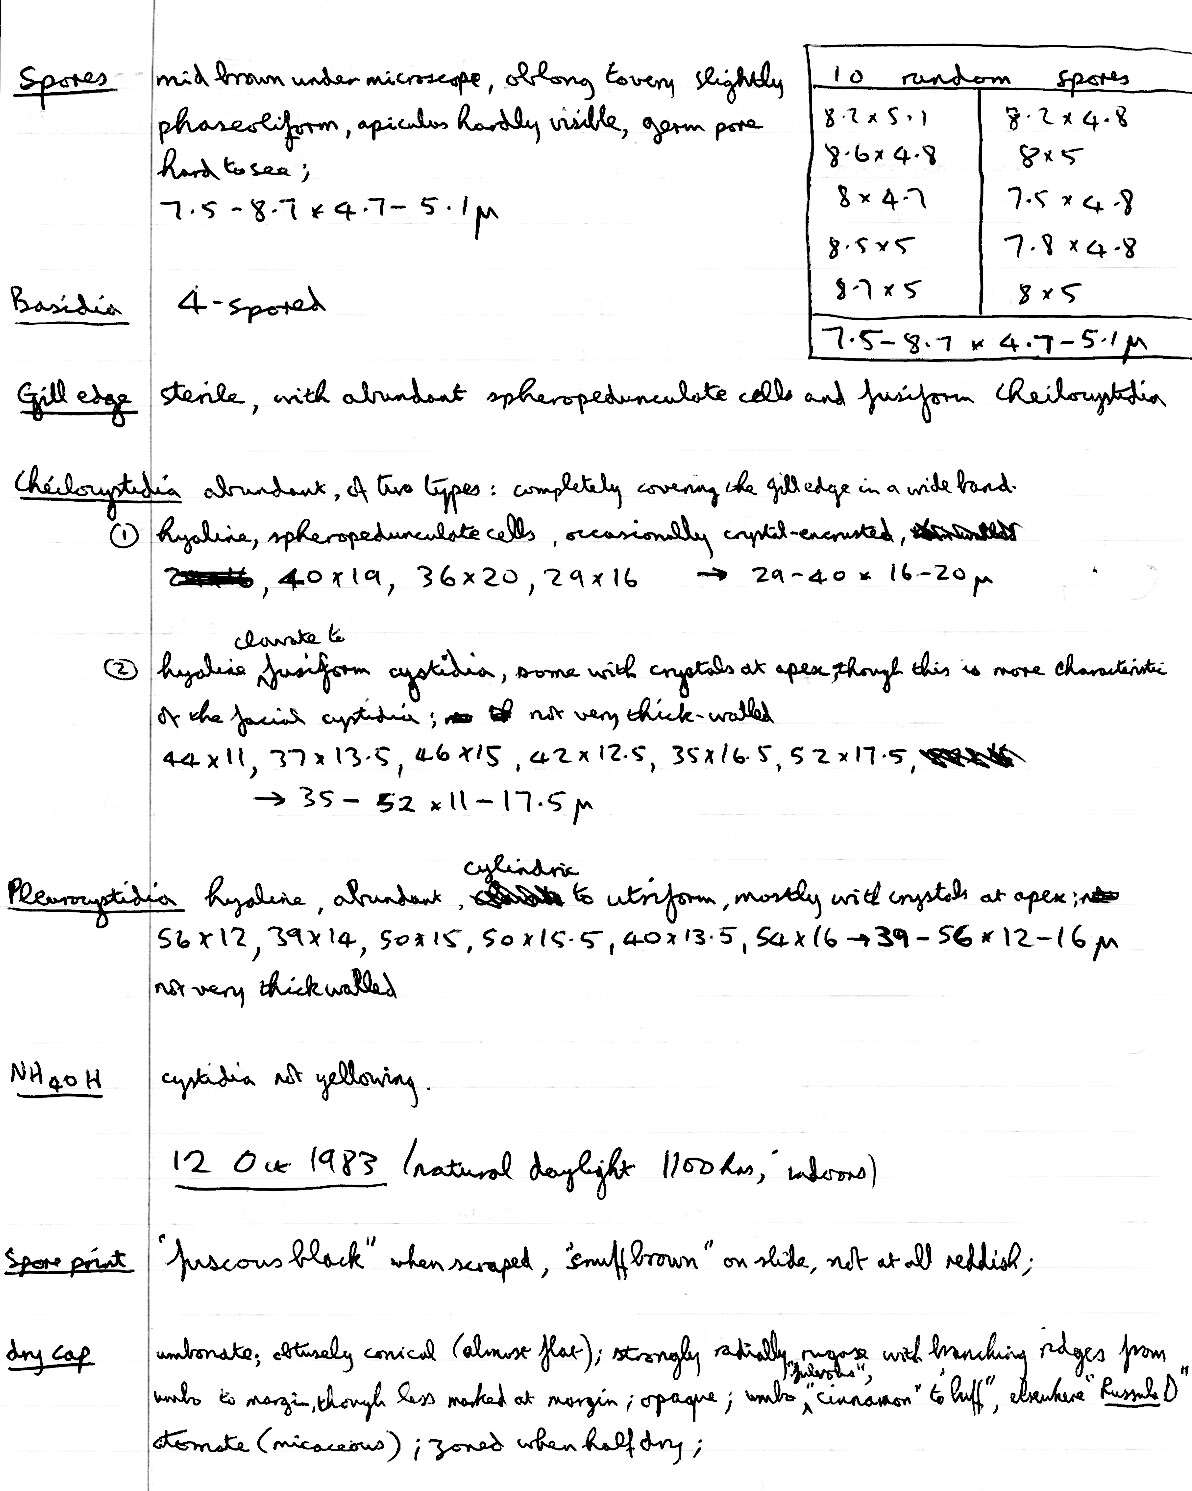 Spores mid brown under microscope, oblong to very slightly
phaseoliform, apiculus hardly visible, germ pore
hard to see;
7.5-8.7 x 4.7-5.1 µ
10 random spores
8.2 x 5.1 8.2 x 4.8
8.6 x 4.8 8 x 5
8 x 4.7 7.5 x 4.8
8.5 x 5 7.8 x 4.8
8.7 x 5 8 x 5
7.5-8.7 x 4.7-5.1 µ
Basidia 4-spored
Gill edge sterile, with abundant spheropedunculate cells and fusiform cheilocystidia
Cheilocystidia abundant, of two types: completely covering the gill edge in a wide band.
① hyaline, spheropedunculate cells, occasionally crystal-encrusted,
, 40 x 19, 36 x 20, 29 x 16 → 29-40 x 16-20 µ
clavate to
② hyaline ^ fusiform cystidia, some with crystals at apex, though this is more characteristic
of the facial cystidia; not very thick-walled
44 x 11, 37 x 13.5, 46 x 15, 42 x 12.5, 35 x 16.5, 52 x 17.5,
→ 35-52 x 11-17.5 µ
cylindric
Pleurocystidia hyaline, abundant, to utriform, mostly with crystals at apex;
56 x 12, 39 x 14, 50 x 15, 50 x 15.5, 40 x 13.5, 54 x 16 → 39-56 x 12-16 µ
not very thick walled
NH4OH cystidia not yellowing.
12 Oct 1983 (natural daylight 1100 hrs, indoors)
Spore print "fuscous black" when scraped, "snuff brown" on slide, not at all reddish;
dry cap umbonate; obtusely conical (almost flat); strongly radially rugose with branching ridges from
"fulvous",
umbo to margin, though less marked at margin; opaque; umbo ^ "cinnamon" to "buff", elsewhere "Russula D"
atomate (micaceous); zoned when half dry;